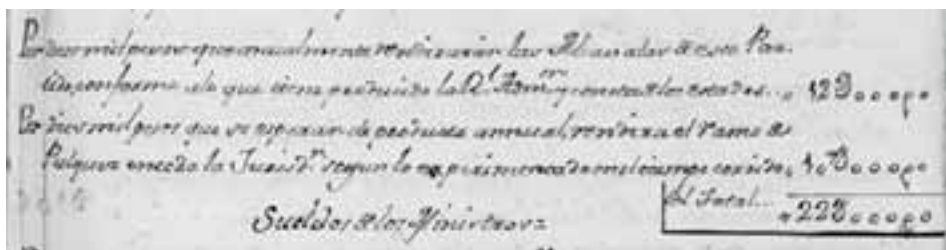 Por doce mil pesos que anualmente rendiran las Alcavalas de este Par-
tido, conforme a lo que tiene producido la Rl. Admon. y consta de los estados... 12@000p0
Por diez mil pesos que se esperan de producto annual, rendira el ramo de
Pulques en toda la Jurisdn. segun lo experimentado en el tiempo corrido 10@000p0
El Total... 22@000p0
Sueldos de los Ministros